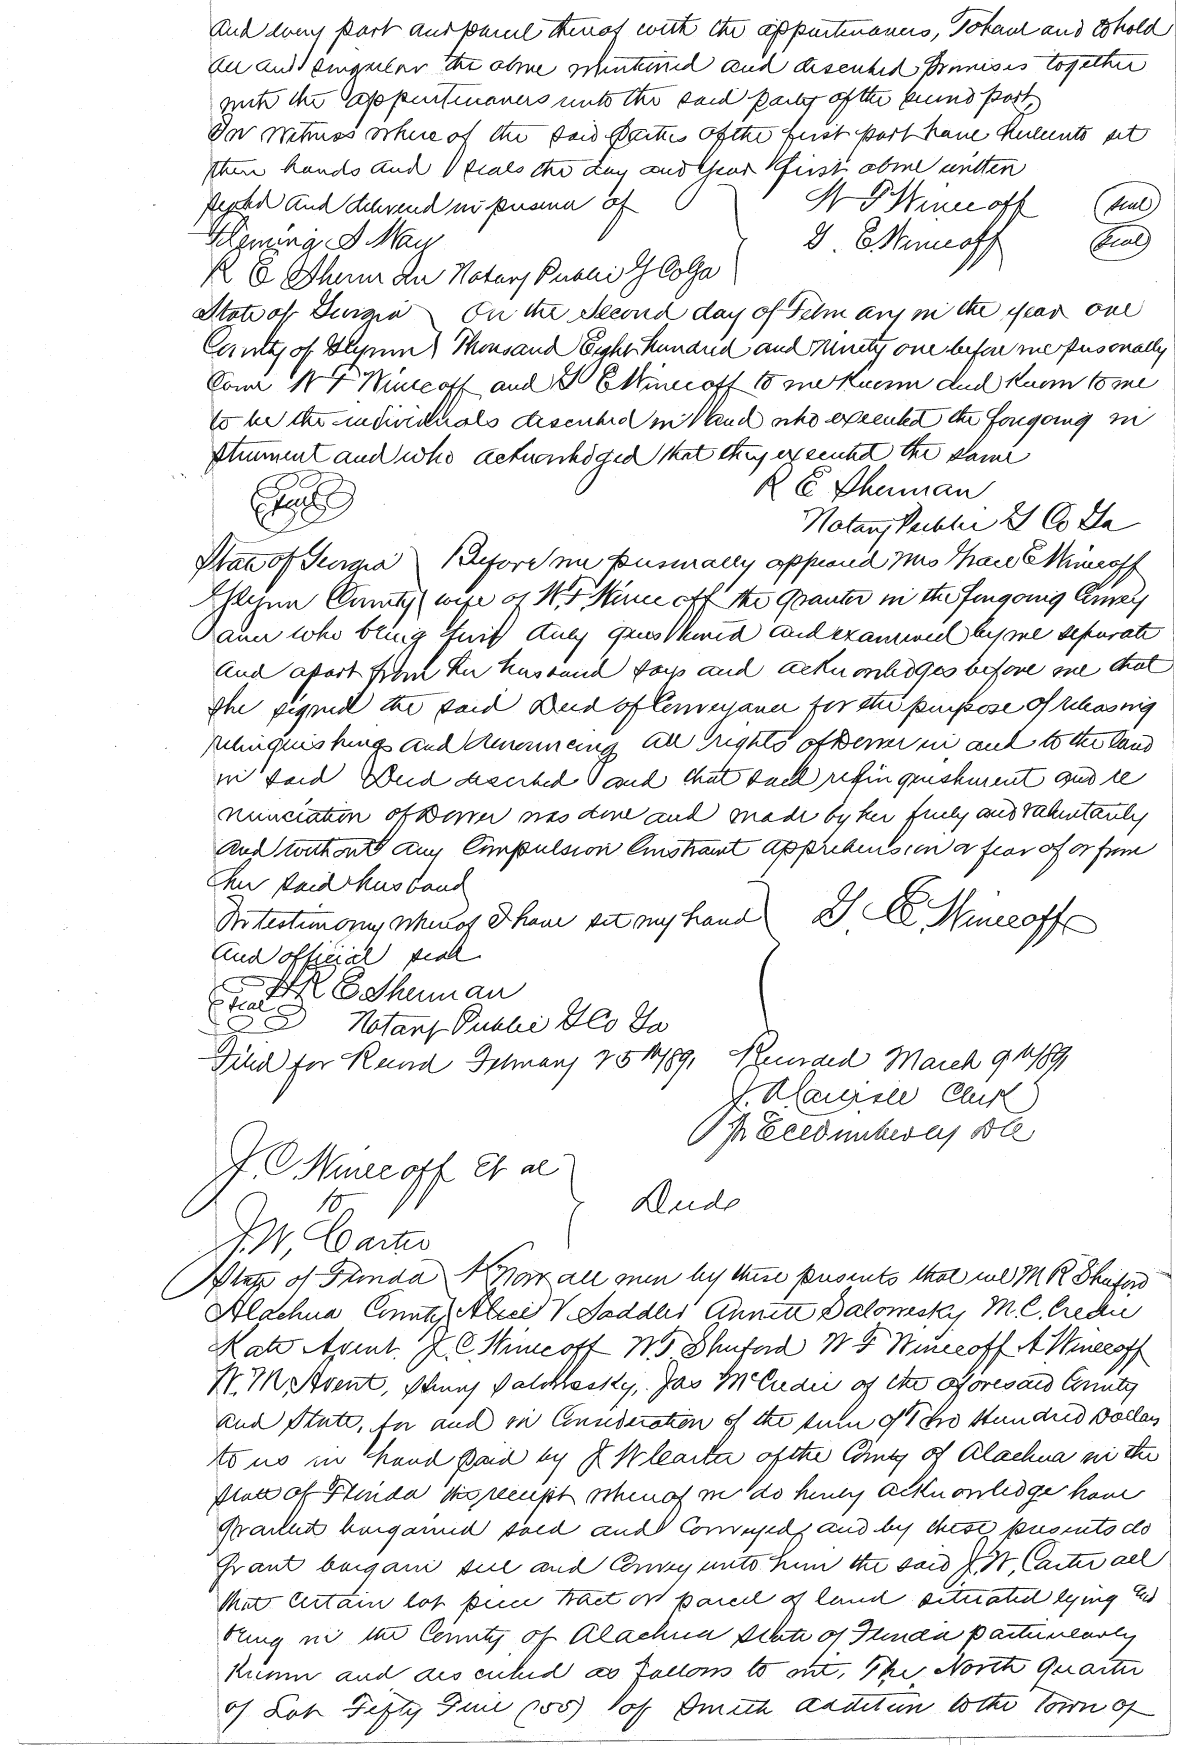 and every part and parcel thereof with the appurtenances, To have and to hold
all and singular the above mentioned and described premises together
with the appurtenances unto the said party of the second part,
In witness where of the said parties of the first part have hereunto set
their hands and seals the day and year first above written
sealed and delivered in presence of W F Winecoff (seal)
Fleming S May G. E. Winecoff (seal)
R E Sherman Notary Public G Co Ga
State of Georgia On the second day of February in the year one
County of Glynn Thousand Eight hundred and ninety one before me personally
Come W F Winecoff and G E Winecoff to me Known and Known to me
to be the individuals described in and who executed the foregoing in
strument and who acknowledged that they executed the same
(seal) R E Sherman
Notary Public G Co Ga
State of Georgia Before me personally appeared Mrs Grace E Winecoff
Glynn County wife of W. F. Winecoff the grantor in the foregoing Convey
ance who being first duly questioned and examined by me separate
and apart from her husband says and acknowledges before me that
she signed the said Deed of Conveyance for the purpose of releasing
relinquishings and renouncing all rights of Dower in and to the land
in said Deed described and that said relinquishment and re
nunciation of Dower was done and made by her freely and voluntarily
and without any Compulsion Constraint apprehension or fear of or from
her said husband
In testimony whereof I have set my hand G. E. Winecoff
and official seal
(seal) R E Sherman
Notary Public G Co Ga
Filed for Record February 25th 1891 Recorded March 9th 1891
J. A. Carlisle Clerk
pr DC
J. C. Winecoff Et al
to Deed
J. W. Carter
State of Florida Know all men by these presents that we M R Shuford
Alachua County Alice V. Saddler Annett Salomesky M. C. Credie
Kate Avent. J. C. Winecoff W. T. Shuford W F Winecoff A Winecoff
W. M. Avent, Henry Salomesky, Jas McCredie of the aforesaid County
and State, for and in Consideration of the sum of Two Hundred Dollars
to us in hand paid by J W Carter of the County of Alachua in the
State of Florida the receipt whereof we do hereby acknowledge have
granted bargained sold and Conveyed, and by these presents do
grant bargain sell and Convey unto him the said J. W. Carter all
that certain lot piece tract or parcel of land situated lying and
being in the County of Alachua State of Florida particularly
known and described as follows to wit, The North Quarter
of Lot Fifty Five (55) of Smith addition to the Town of